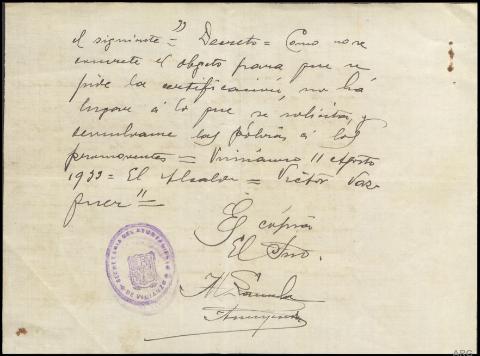 "
el siguiente = Decreto = Como no se
concrete el objeto para que se
pide la certificación, no há
lugar á lo que se solicita, y
devuélvanse las pólizas á los
promoventes = Vimianzo 11 Agosto
1933 = El Alcalde = Víctor Vaz-
quez" =
Es cópia
El Srio.
SECRETARIA DEL AYUNTAMIENTO
DE
ARG